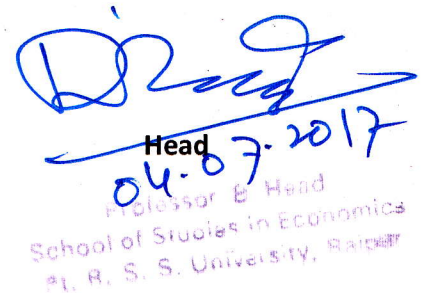 Head
04.07.2017
Professor & Head
School of Studies in Economics
Pt. R. S. S. University, Raipur